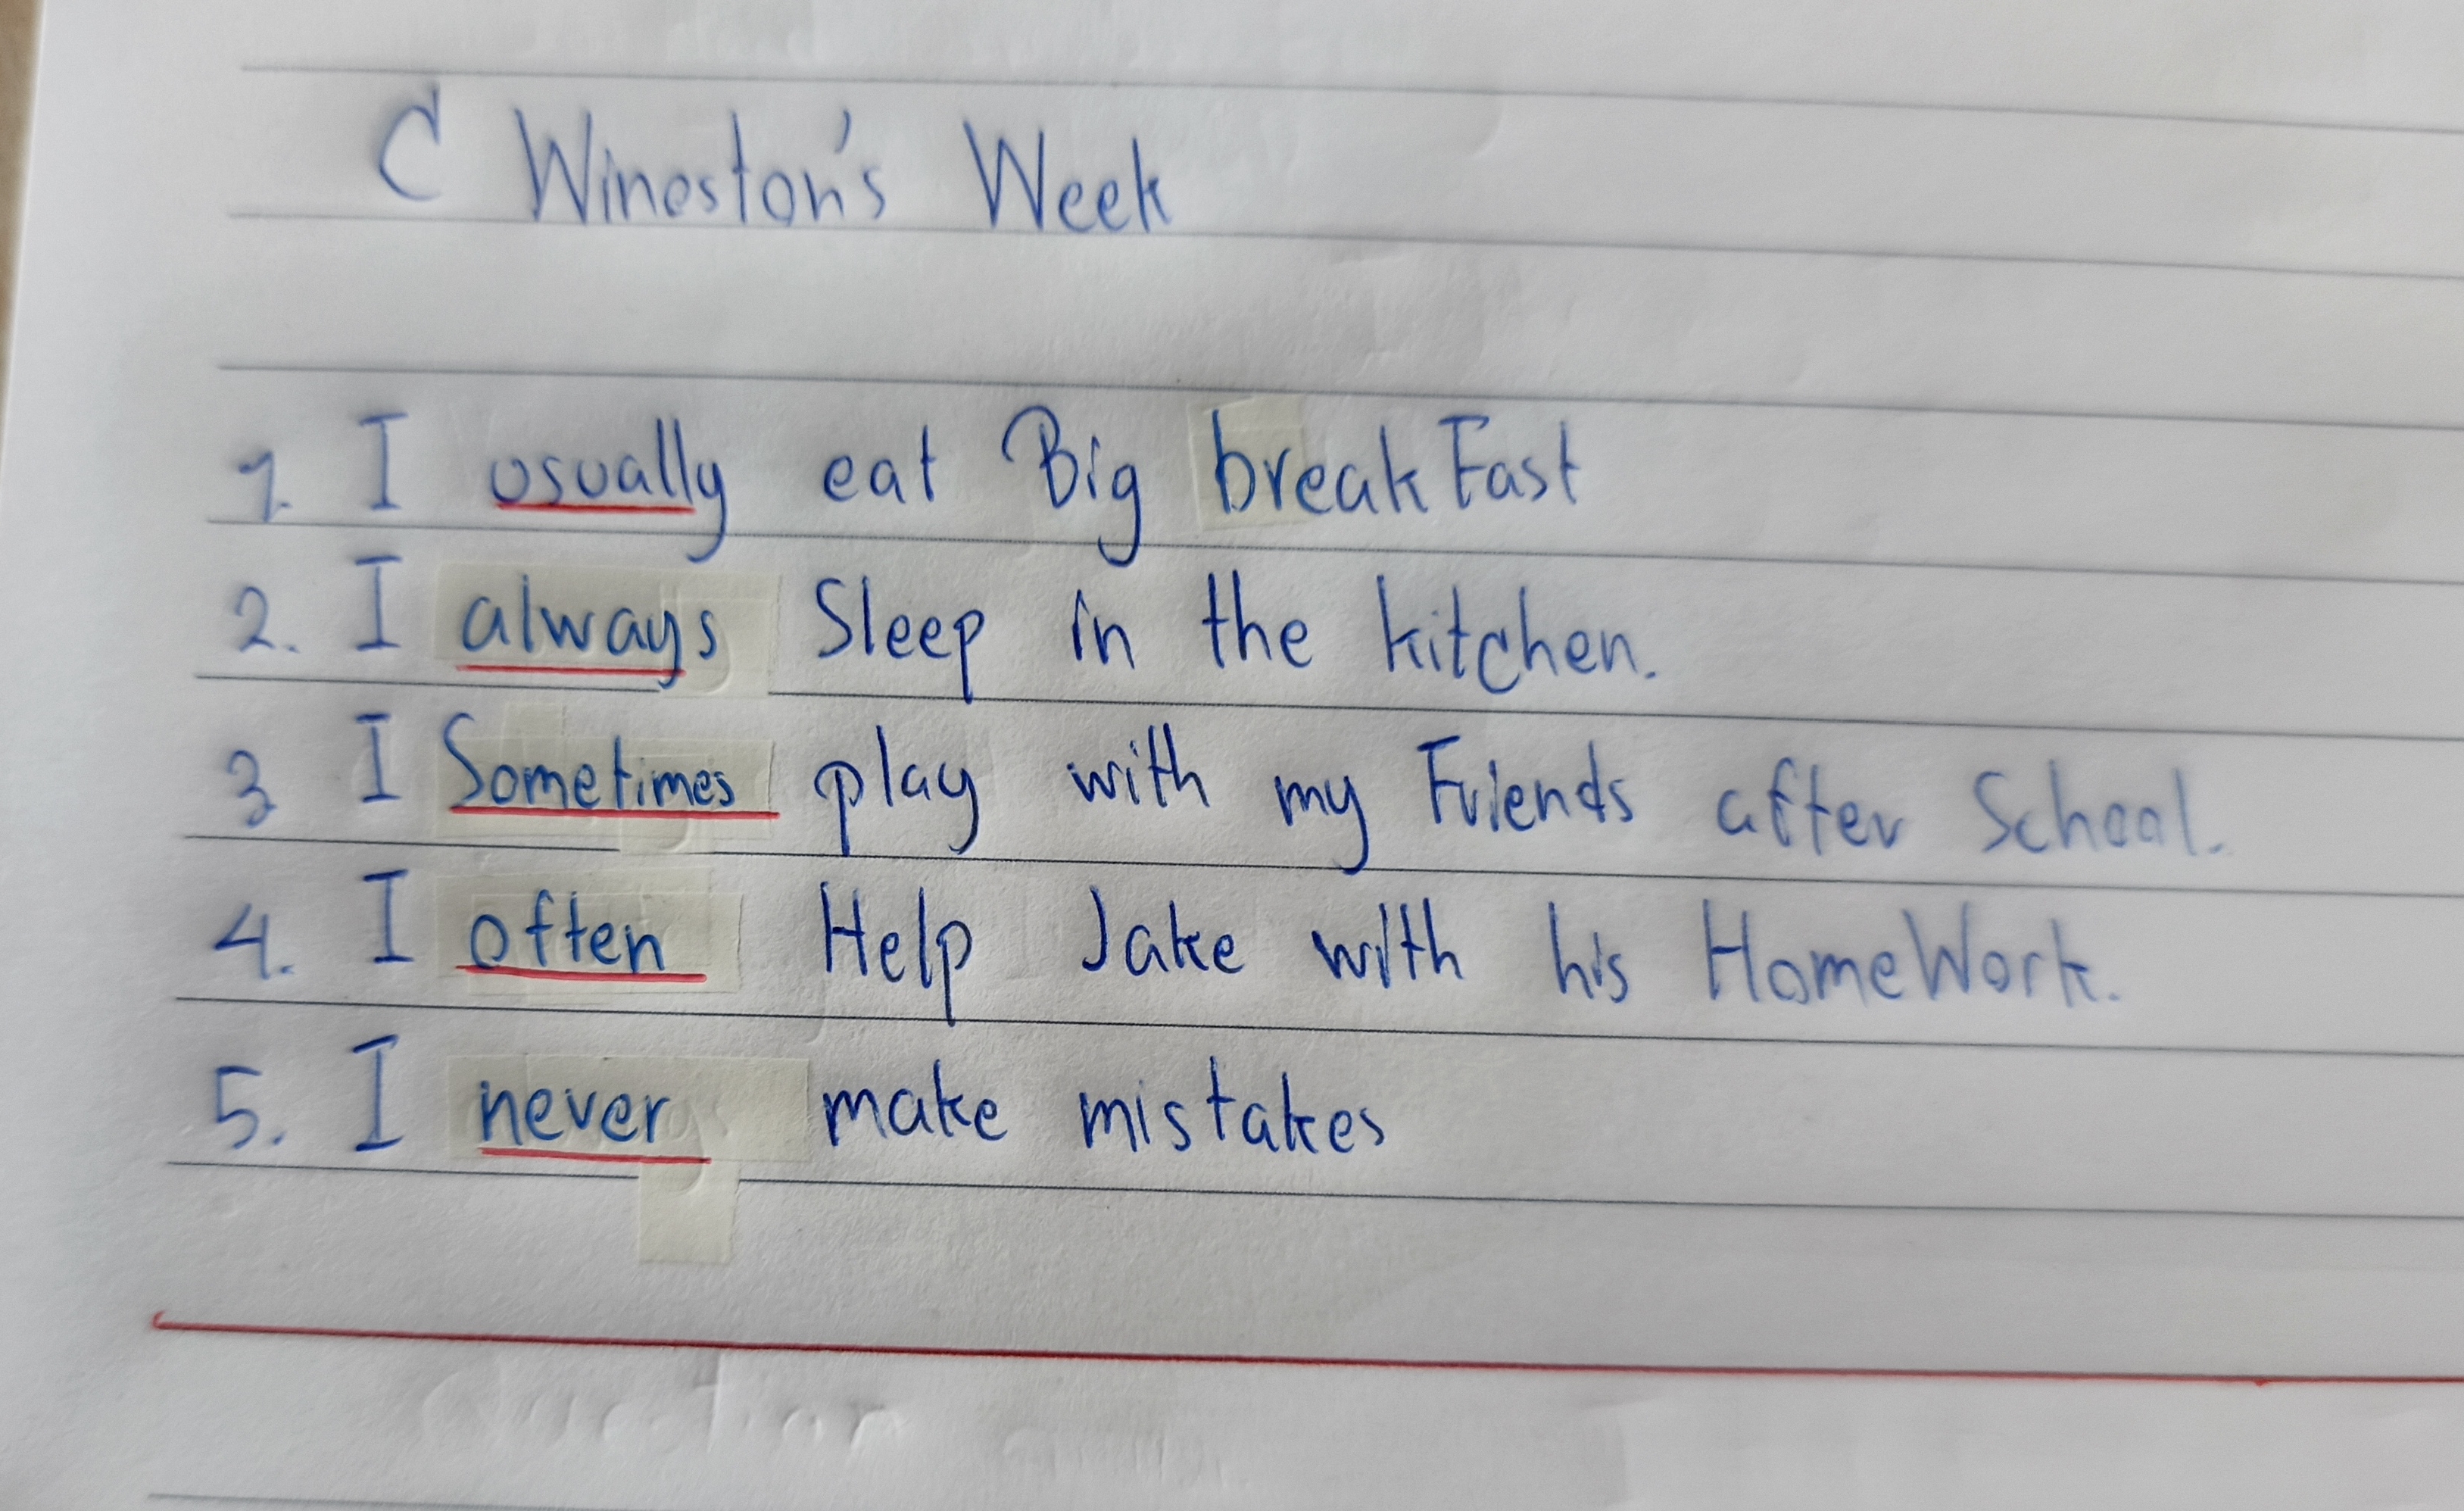 C Winoston's Week
1. I usually eat Big breakFast
2. I always Sleep in the kitchen.
3 I Sometimes play with my Friends after School.
4. I often Help Jake with his HomeWork.
5. I never make mistakes